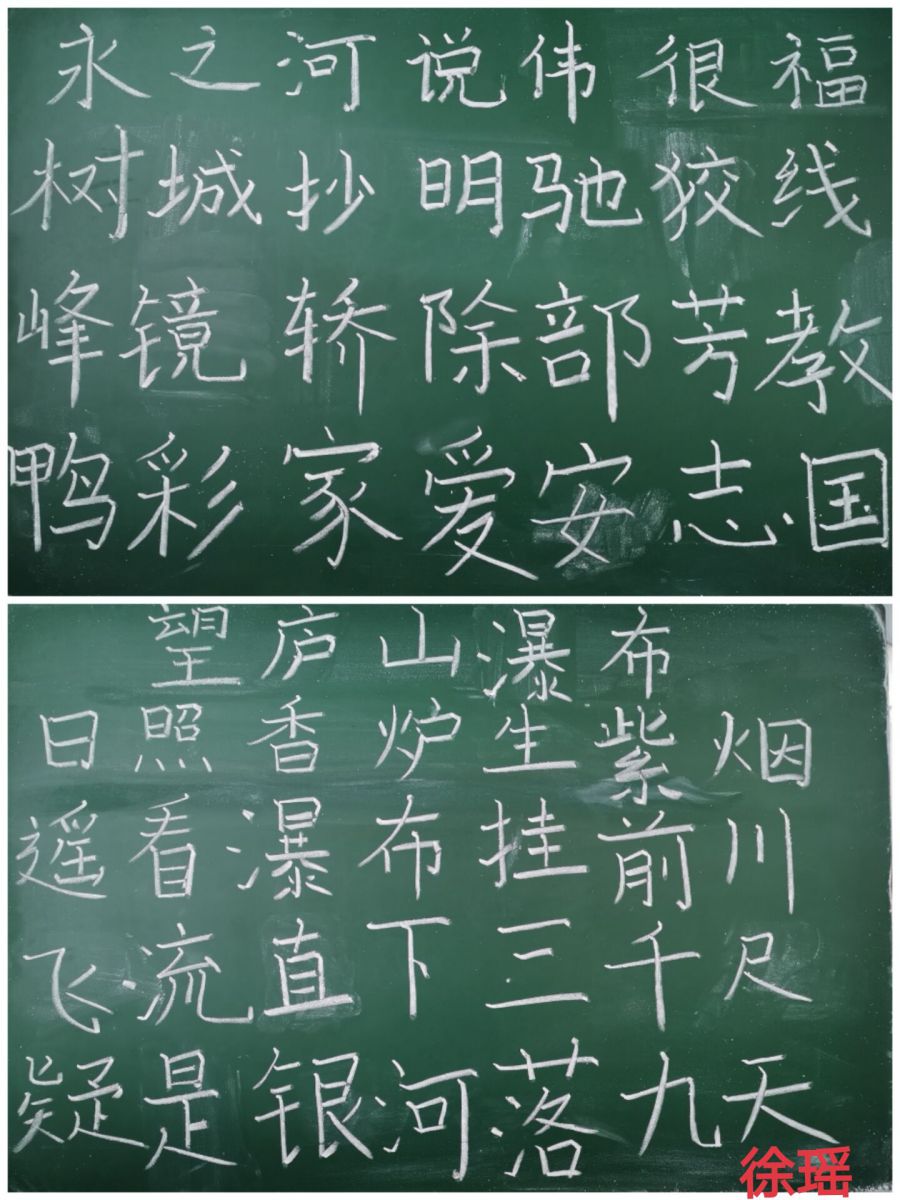 永之河说伟很福
树城抄明驰狡线
峰镜轿除部芳教
鸭彩家爱安志国
望庐山瀑布
日照香炉生紫烟
遥看瀑布挂前川
飞流直下三千尺
疑是银河落九天
徐瑶